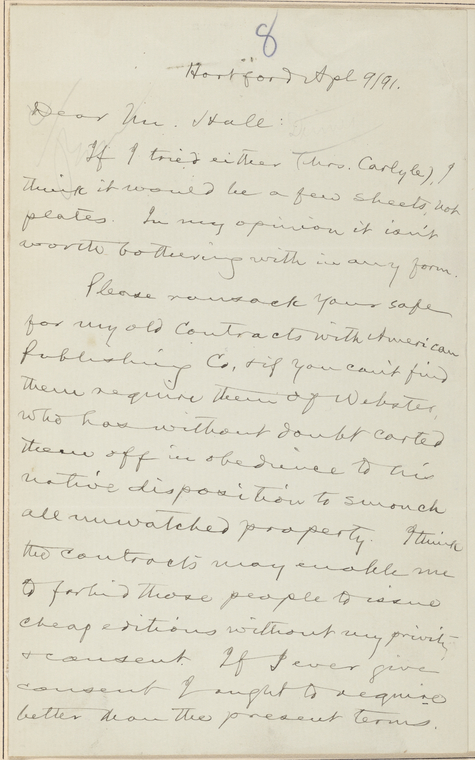 8
Hartford Apl 9/91.
Dear Mr. Hall:
If I tried either (Mrs. Carlyle), I
think it would be a few sheets, not
plates. In my opinion it isn't
worth bothering with in any form.
Please ransack your safe
for my old contracts with American
Publishing Co, & if you can't find
them require them of Webster,
who has without doubt carted
them off in obedience to his
native disposition to smouch
all unwatched property. I think
the contracts may enable me
to forbid those people to issue
cheap editions without my privity
& consent. If I ever give
consent I ought to require
better than the present terms.